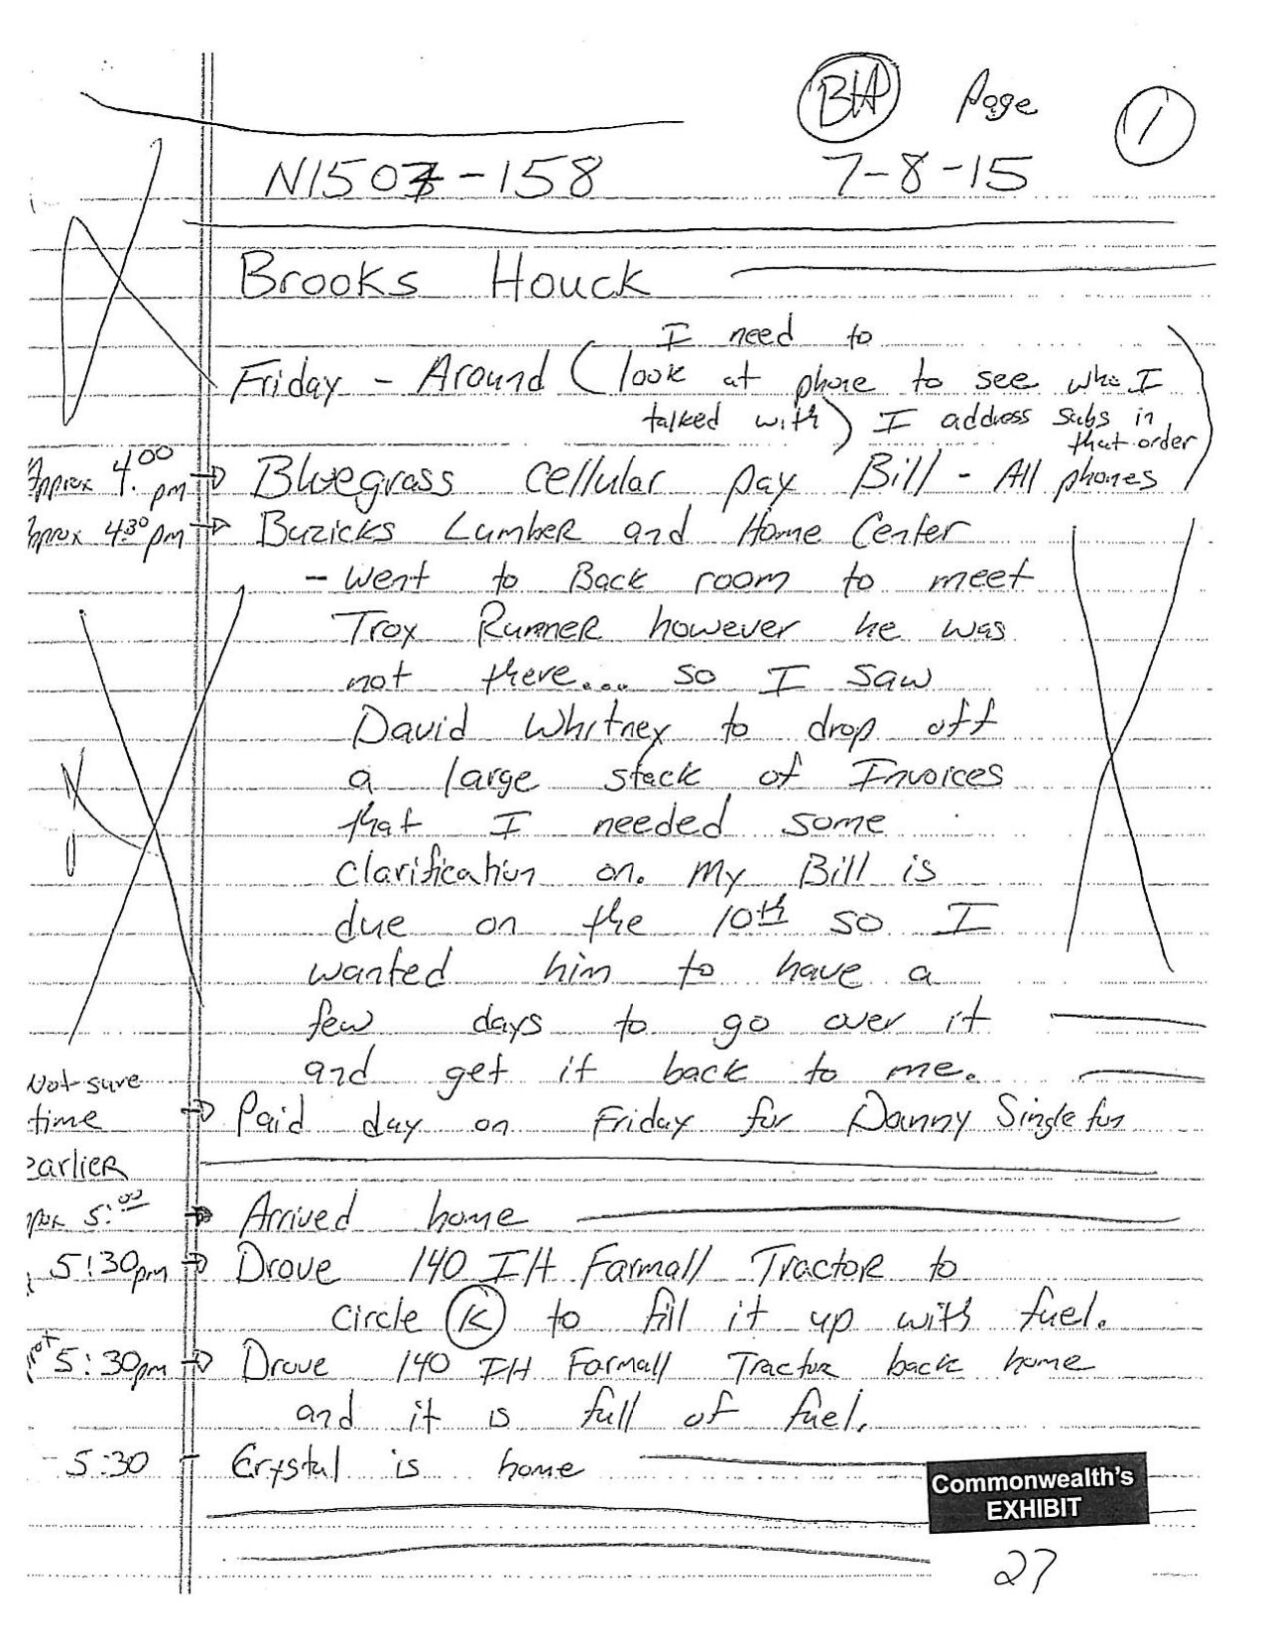 BHA Page 1
N1507-158 7-8-15
Brooks Houck
I need to
Friday - Around (look at phone to see who I
talked with) I address subs in
that order
Approx 4:00 pm → Bluegrass Cellular pay Bill - All phones
Approx 4:30 pm → Buzicks Lumber and Home Center
- went to Back room to meet
Troy Rummer however he was
not there... so I saw
David Whitney to drop off
a large stack of Invoices
that I needed some
clarification on. My Bill is
due on the 10th so I
wanted him to have a
few days to go over it
and get it back to me.
Not sure
time → Paid day on Friday for Danny Singleton
earlier
5:00 → Arrived home
5:30pm → Drove 140 IH Farmall Tractor to
circle K to fill it up with fuel.
5:30pm → Drove 140 IH Farmall Tractor back home
and it is full of fuel.
- 5:30 - Crystal is home
Commonwealth's
EXHIBIT
27